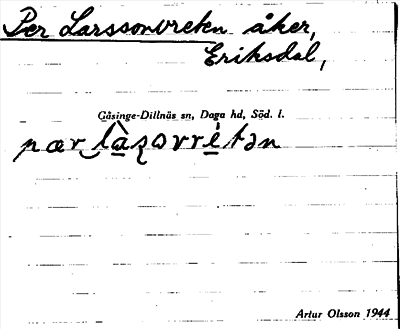 Per Larssonvreten åker,
Eriksdal,
Gåsinge-Dillnäs sn, Daga hd, Söd. l.
Artur Olsson 1944